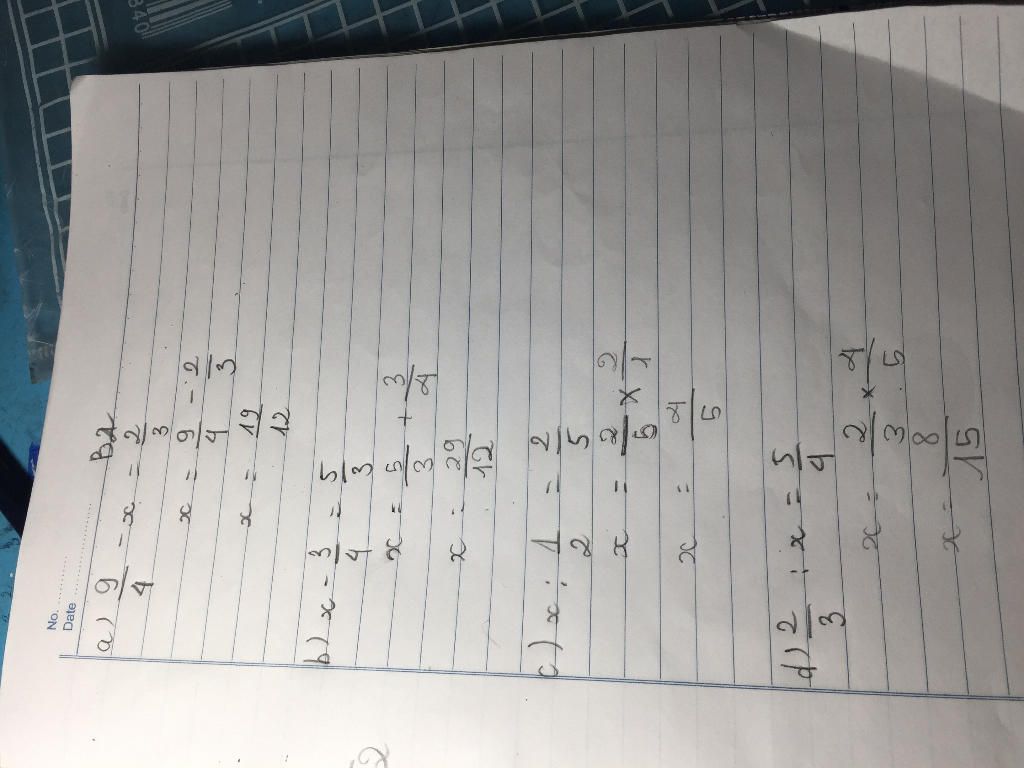 No.
Date
B2
a) 9/4 - x = 2/3
x = 9/4 - 2/3
x = 19/12
b) x - 3/4 = 5/3
x = 5/3 + 3/4
x = 29/12
c) x : 1/2 = 2/5
x = 2/5 × 2/1
x = 4/5
d) 2/3 : x = 5/4
x = 2/3 × 4/5
x = 8/15